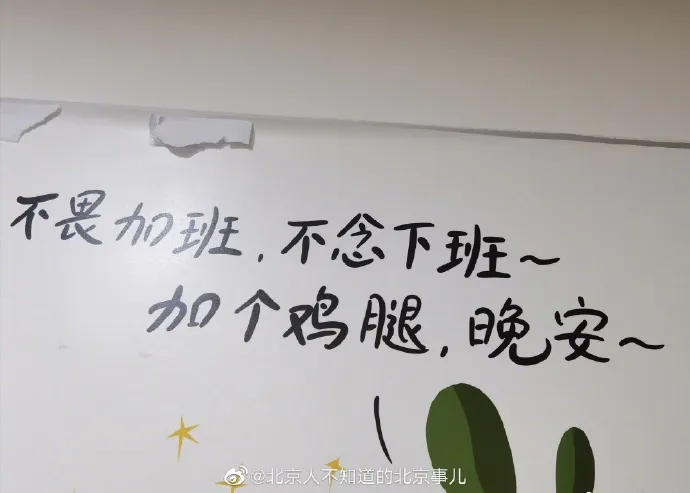 不畏加班,不念下班~
加个鸡腿,晚安~
@北京人不知道的北京事儿